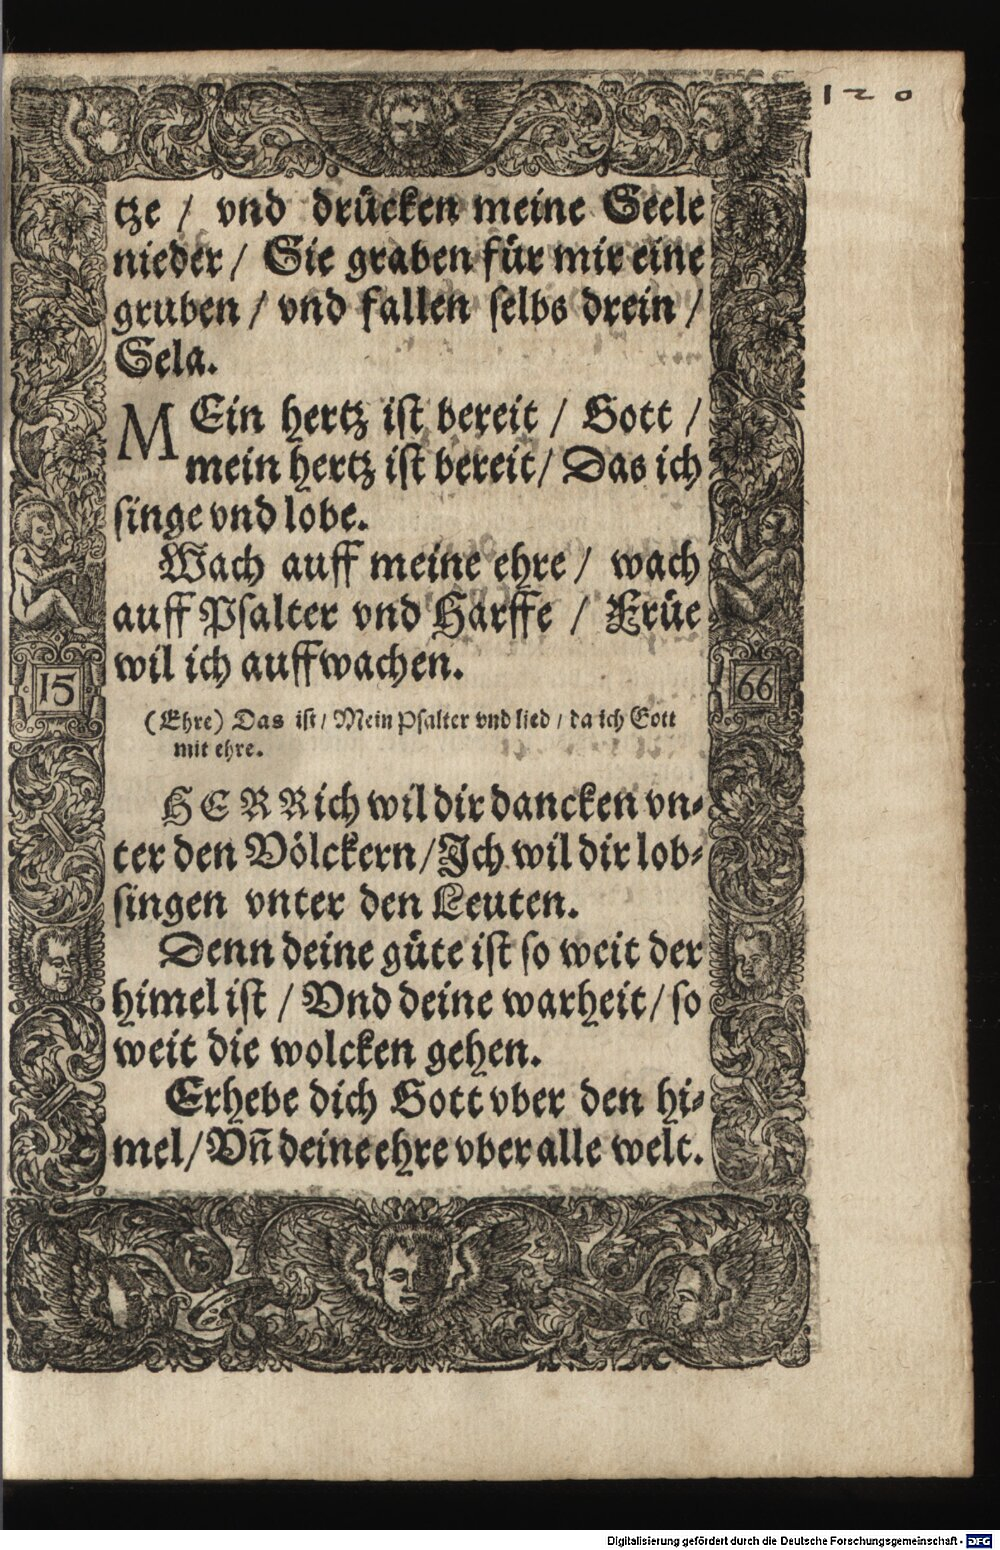 120
tze / vnd drücken meine Seele
nieder / Sie graben für mir eine
gruben / vnd fallen ſelbs drein /
Sela.
MEin hertz iſt bereit / Gott /
mein hertz iſt bereit / Das ich
ſinge vnd lobe.
Wach auff meine ehre / wach
auff Pſalter vnd Harffe / Früe
wil ich auffwachen.
15
66
(Ehre) Das iſt / Mein Pſalter vnd lied / da ich Gott
mit ehre.
HERR ich wil dir dancken vn⸗
ter den Völckern / Ich wil dir lob⸗
ſingen vnter den Leuten.
Denn deine güte iſt ſo weit der
himel iſt / Vnd deine warheit / ſo
weit die wolcken gehen.
Erhebe dich Gott vber den hi⸗
mel / Vn̄ deine ehre vber alle welt.
Digitalisierung gefördert durch die Deutsche Forschungsgemeinschaft - DFG